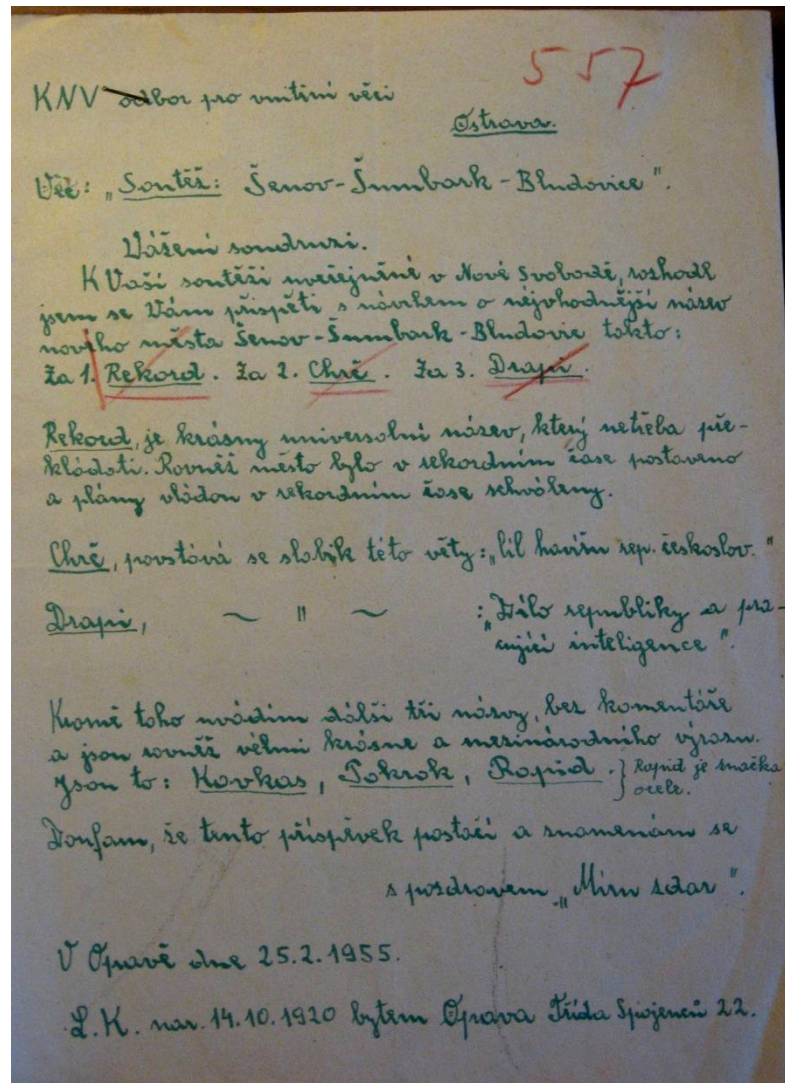 557
KNV odbor pro vnitřní věci
Ostrava.
Věc: „Soutěž: Šenov-Šumbark-Bludovice".
Vážení soudruzi.
K Vaší soutěži uveřejněné v Nové Svobodě, rozhodl
jsem se Vám přispěti s návrhem o nejvhodnější název
nového města Šenov-Šumbark-Bludovic takto:
Za 1. Rekord. Za 2. Chrč. Za 3. Drapi.
Rekord, je krásny universolní název, který netřeba pře-
kládati. Rovněž město bylo v rekordním čase postaveno
a plány vládou v rekordním čase schváleny.
Chrč, povstává se slabik této věty: „cíl havířu rep. českoslov."
Drapi, ~ " ~ : „Dílo republiky a pra-
cující inteligence".
Kromě toho uvádím dálši tři názvy, bez komentáře
a jsou rovněž vélmi krásne a mezinárodního výrazu.
Jsou to: Kavkas, Pokrok, Rapid. } Rapid je značka
ocele.
Doufam, že tento příspěvek postačí a znamenám se
s pozdravem „Míru zdar".
V Opavě dne 25.2.1955.
L.K. nar. 14.10.1920 bytem Opava Třída Spojenců 22.